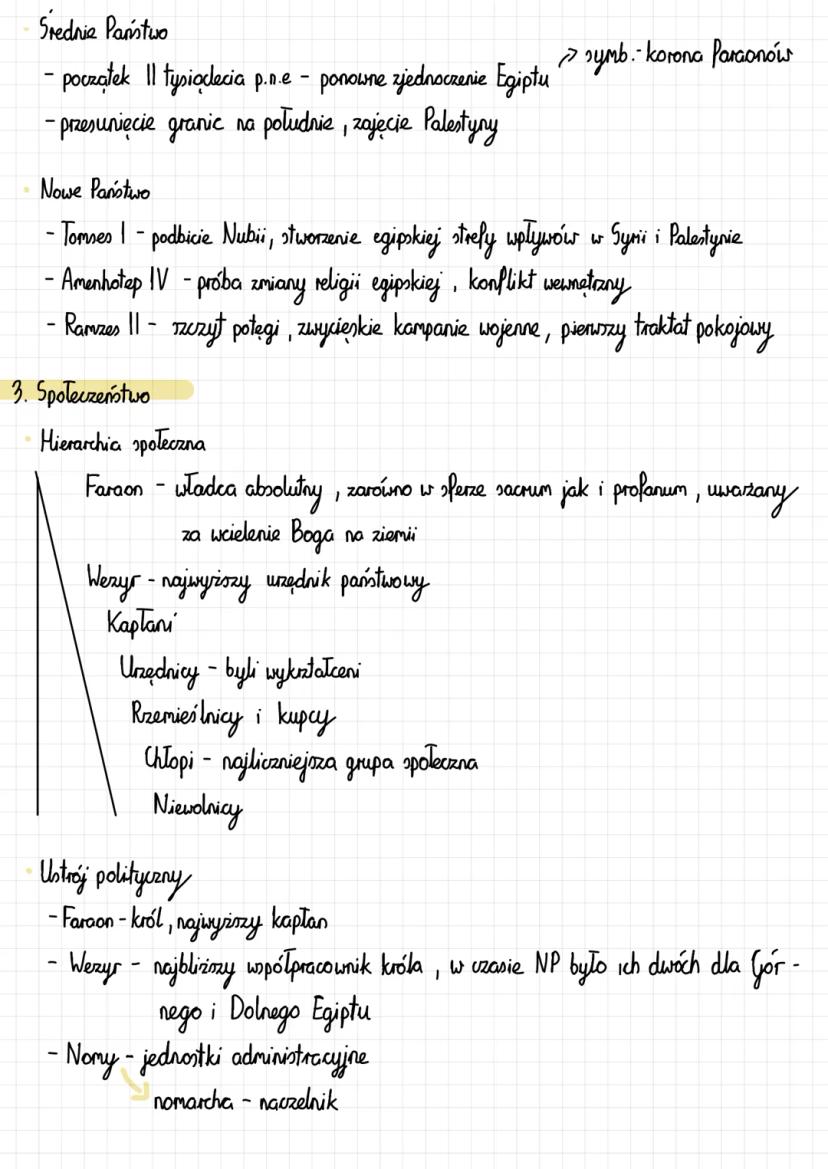 Średnie Państwo
- początek II tysiąclecia p.n.e - ponowne zjednoczenie Egiptu → symb.- korona Faraonów
- przesunięcie granic na południe, zajęcie Palestyny
Nowe Państwo
- Tomses I - podbicie Nubii, stworzenie egipskiej strefy wpływów w Syrii i Palestynie
- Amenhotep IV - próba zmiany religii egipskiej, konflikt wewnętrzny
- Ramzes II - szczyt potęgi, zwycięskie kampanie wojenne, pierwszy traktat pokojowy
3. Społeczeństwo
Hierarchia społeczna
Faraon - władca absolutny, zarówno w sferze sacrum jak i profanum, uważany
za wcielenie Boga na ziemii
Wezyr - najwyższy urzędnik państwowy
Kapłani
Urzędnicy - byli wykształceni
Rzemieślnicy i kupcy
Chłopi - najliczniejsza grupa społeczna
Niewolnicy
Ustrój polityczny
- Faraon - król, najwyższy kapłan
- Wezyr - najbliższy współpracownik króla, w czasie NP było ich dwóch dla Gór-
nego i Dolnego Egiptu
- Nomy - jednostki administracyjne
nomarcha - naczelnik